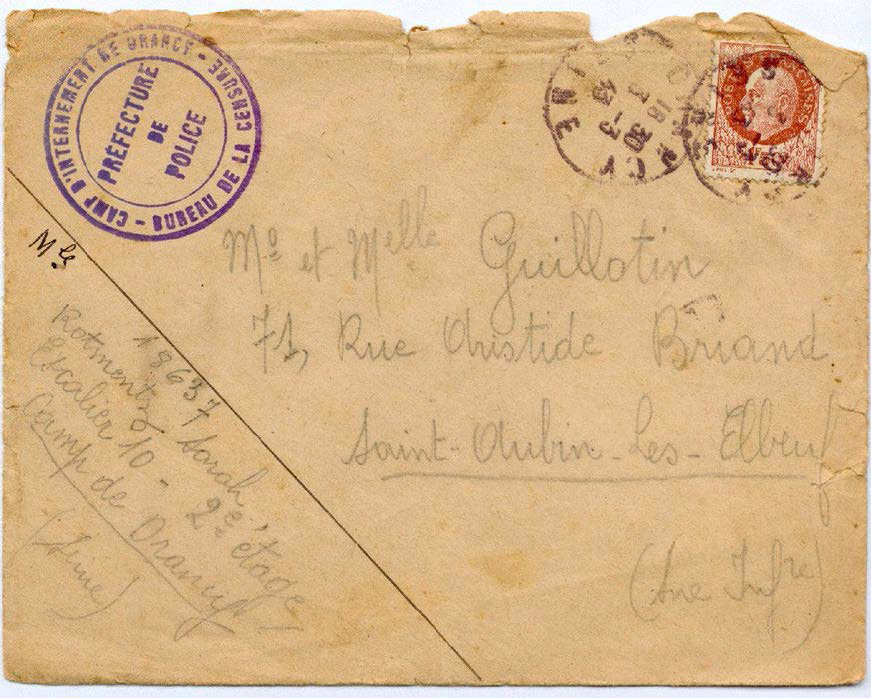 CAMP D'INTERNEMENT DE DRANCY - BUREAU DE LA CENSURE -
PRÉFECTURE
DE
POLICE
18 30
3 -3
Mr et Melle Guillotin
71, Rue Aristide Briand
Saint-Aubin-Les-Elbeuf
(Sne Infre)
Mle
18637 Sarah
Escalier 10 - 2e étage
Camp de Drancy
(Seine)